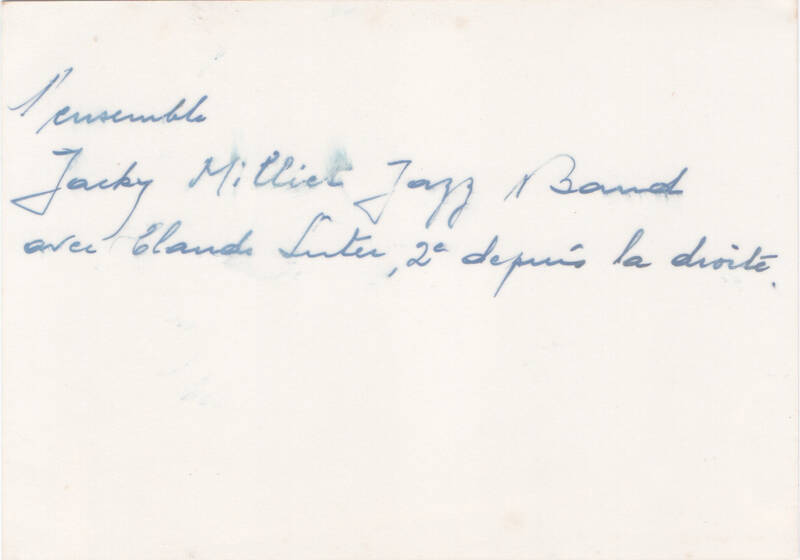 l'ensemble
Jacky Milliet Jazz Band
avec Claude Luter, 2e depuis la droite.